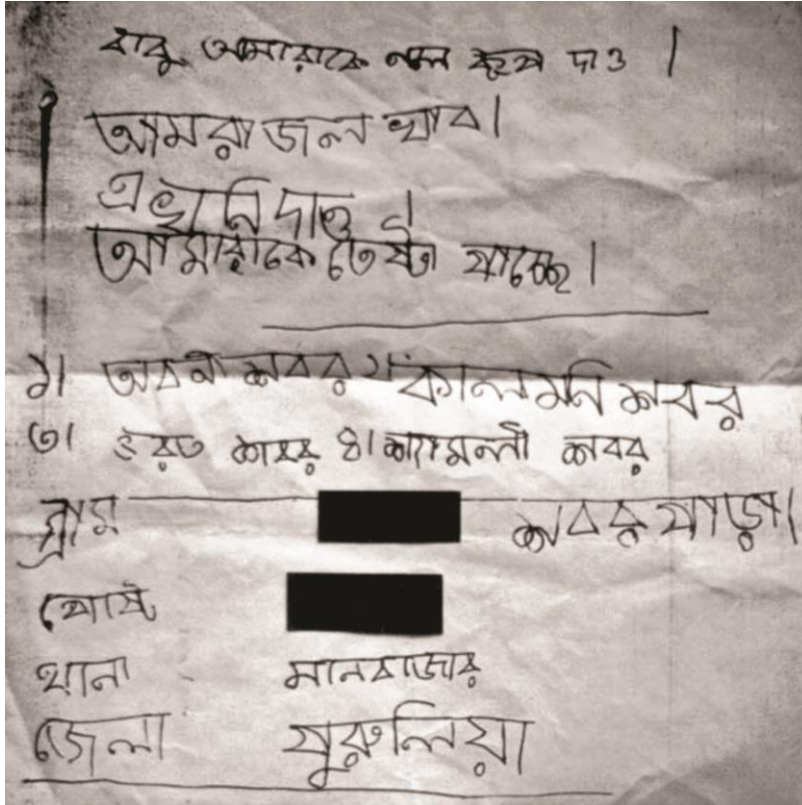 বাবু আমারাকে নল কূপ দাও।
আমরা জল খাব।
এখুনি দাও।
আমারাকে তেষ্টা পাচ্ছে।
১। অবনী শবর ২। কালমনি শবর
৩। ভরত শবর ৪। শ্যামলী শবর
গ্রাম শবর পাড়া।
পোষ্ট
থানা মানবাজার
জেলা পুরুলিয়া